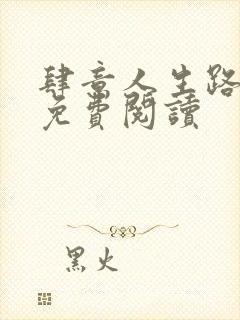 肆意人生路
免費閱讀
黑火